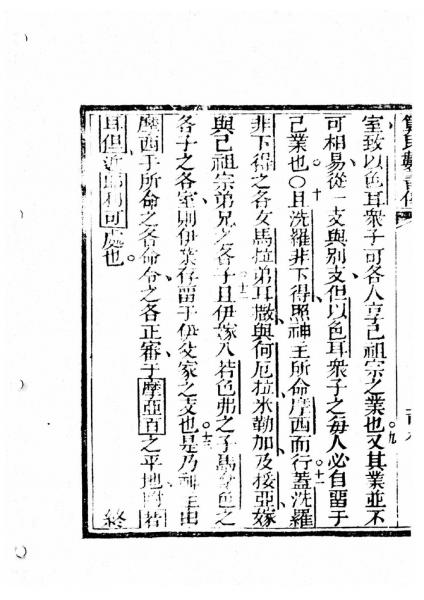 室致以色耳衆子可各人享己祖宗之業也○九又其業並不
可相易從一支與別支但以色耳衆子之毎人必自留于
己業也○十且洗羅非下得照神主所命摩西而行○十一蓋洗羅
非下得之各女馬拉弟耳撒與何厄拉米勒加及挼亞嫁
與己祖宗弟兄之各子○十二且伊嫁入若色弗之子馬拿色之
各子之各室則伊業存留于伊父家之支也○十三是乃神主由
摩西于所命之各命令之各正審于摩亞百之平地附若
耳但近耶利可處也
終